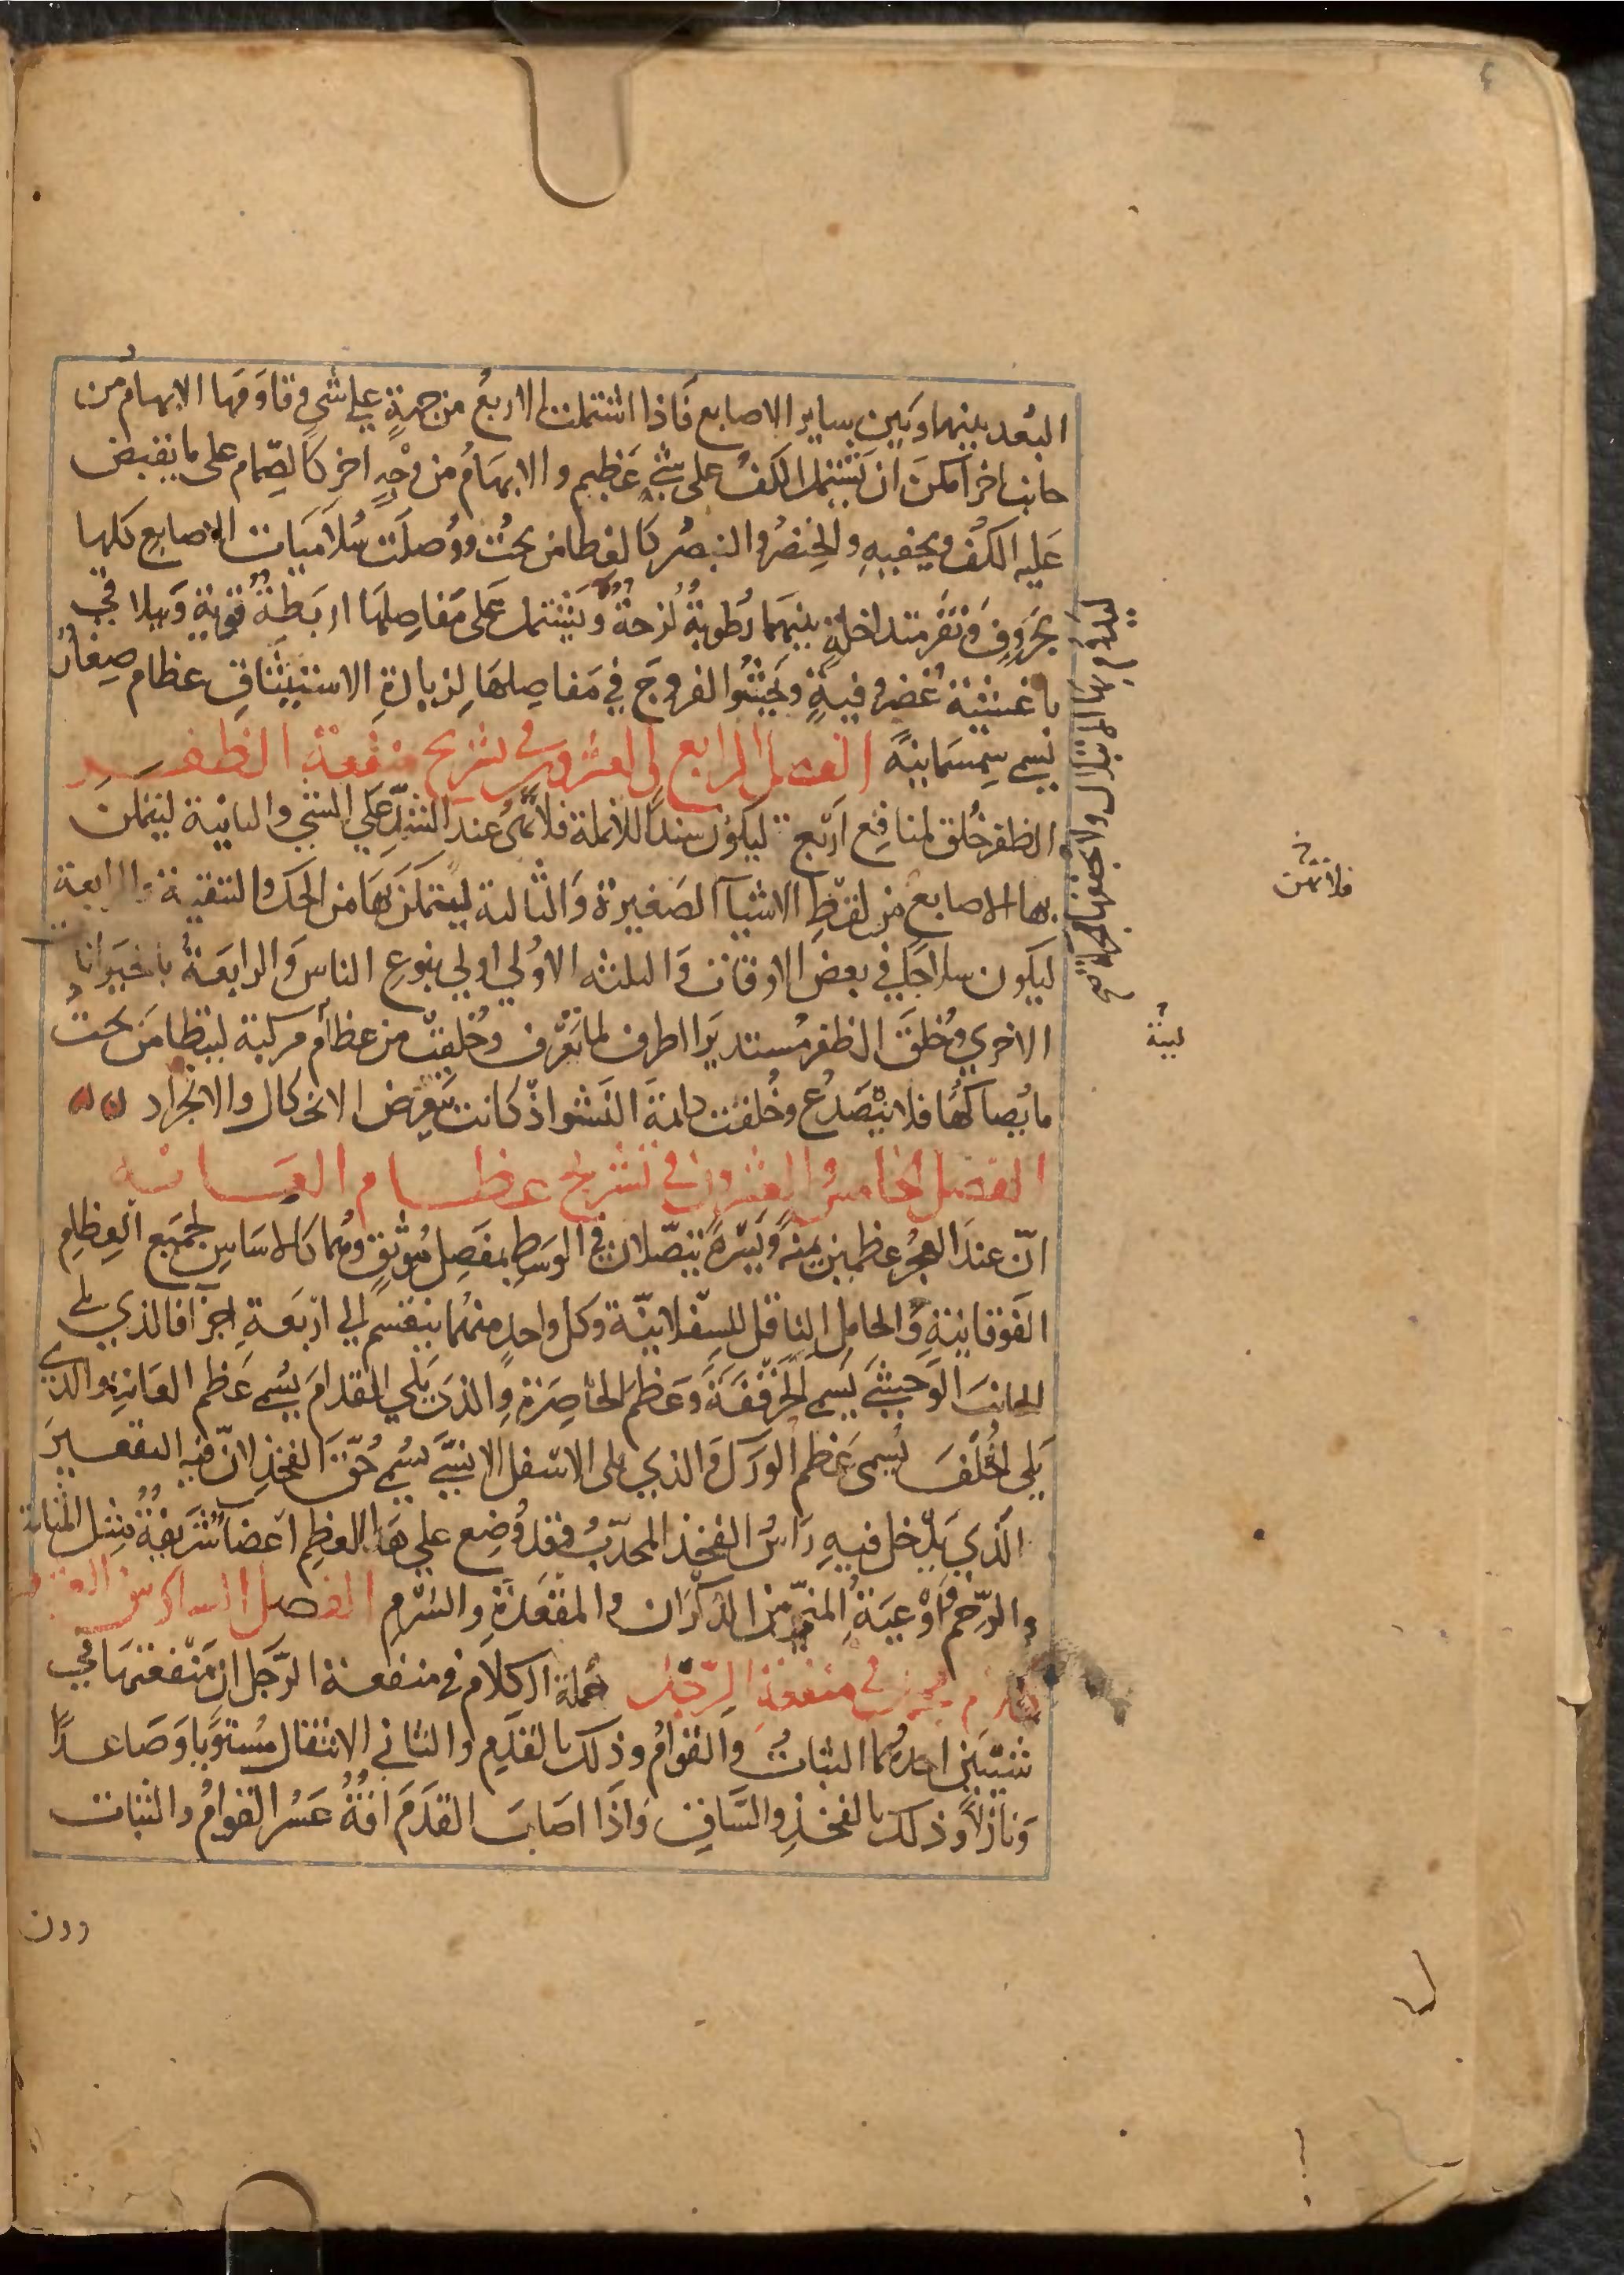 البُعد بينهما وبَين ساير الاصابع فَاذا اشتملت الاربعُ من جهةٍ علي شيٍ وقاوَمَها الابهامُ من
جانب اخر اَمكنَ ان يَشتمل الكفُ على شيٍ عَظيمٍ والابهَامُ من وجْهٍ اخر كَالصِّمام على ما يقبض
عَليه الكفُ ويخفيهِ والخِنصُر والبنصُر كَالغِطا من تحتُ ووُصلَت سُلاَميَات الاصابعِ كلها
بحَروفٍ ونقَرٍ متداخلةٍ بينهَما رُطوبةٌ لزجةٌ ويَشتمل عَلى مَفاصِلهَا اربَطةٌ قويةٌ وَيتلاقي
باغشيَة غُضروفيةٍ وتَحشُوا الفروجَ في مَفاصِلهَا لِزيادَةِ الاستيثَاقِ عظام صِغارٌ
تسمي سِمسمَانيةً الفصل الرابع والعشرون في تشريح منفعة الظفر
الظفر خُلق لمنافِع اَربَع ليكونَ سنداً للانملة فلا تهنُ عند الشدِّ عَلي الشي والثانية ليتمكنَ
بها الاصابع من لقطِ الاشيآ الصَغيرة وَالثالثة ليتمكنَ بهَا من الحك والتنقية والرابعة
ليكون سلاحاً في بعض الاوقات وَالثلثه الاوُلي اولي بنوع الناس وَالرابعَة بالحَيَوانات
الاخري وخُلقَ الظفر مُستديرَ الطرف لما يعُرَف وخُلقتْ من عظامٍ مركبة ليتطامَن تحت
ما يُصاكُهَا فلا يتَصَدعُ وخُلقت دايمَة النَشو اذْ كانت بتعرض الانحكال والانجرَاد
الفصل الخامسُ والعشرون في تشريح عظام العانه
انّ عندَ العجُز عظمين يمنَةً وَيَسْرةً يتصّلان في الوَسَطِ بمفَصِلٍ مُوثَقٍ وهُما كالاسَاسِ لجمَيع العِظامِ
الفَوقانيةِ وَالحامِل الناقل للسِفلانيّة وكل واحدٍ منهُما ينقسم الي اربَعةِ اجزآ فالذي يلي
الجانبَ الوَحشيَ يُسمي الحَرقَفَةَ وَعَظم الخَاصِرَةِ والذي يَلي القدامَ يسُمي عَظم العَانةِ والذي
يَلي الخلفَ يُسمى عَظم الوَرَك والذي يلي الاسْفل الانسيَّ يُسمي حُقَّ الفخذِ لانّ فيه التقعيرَ
الَذي يَدخل فيهِ رَاسُ الفخِذِ المحدّبُ فقد وُضِع علي هَذا العظِم اعضآ شَريفةٌ مثِل المثانة
والرَحِم وَاَوْعيَةُ المنيّ من الذكرَان والمقعَدَةِ والسُرْمِ الفصل السادس العشر
في منفعَة الرِّجل جُملة الكلام في منفعة الرَّجل ان مَنفعتهَا في
شَيئيَن احدهُما الثباتُ والقوامُ وذلك بالقدَمِ والثاني الانتقال مُستوياً وَصَاعداً
وَنازلاً وذلك بالفخذِ والسَاقِ وَاذَا اصَابَ القدَمَ افةٌ عَسُر القوامُ والثبات
دون
فلا تهن
لينة